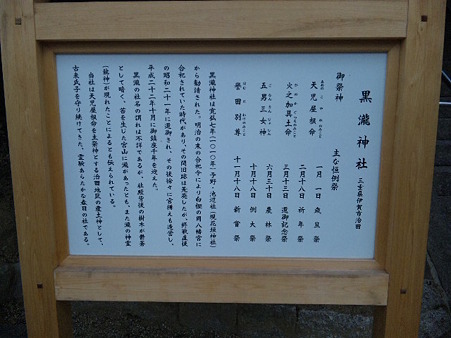 黒瀧神社 三重県伊賀市治田
御祭神
主な恒例祭
天児屋根命
一月一日 歳旦祭
火之加具土命
二月十八日 祈年祭
三月十三日 還御記念祭
五男三女神
六月三十日 慶林祭
十月十八日 例大祭
誉田別尊
十一月十八日 新嘗祭
黒瀧神社は寛弘七年(一〇一〇年)予野・池辺社(現花垣神社)
から勧請された。明治の末の合祀令により白樫の岡八幡宮に
合祀されていた時代があり、その間旧跡は荒廃したが、終戦直後
の昭和二十一年に還御され、その後徐々に宮構えも造営し、
平成二十二年十月に御鎮座千年を迎えた。
黒瀧の社名の謂れは不詳であるが、社殿背後の樹木が鬱蒼
として暗く、苔を生した岩山に瀧があったとも、また瀧の神霊
(龍神)が現れたことによるとも伝えられている。
当社は天児屋根命を主祭神とする治田地区の産土神として、
古来氏子を守り続けてきた、霊験あらたかな森目の社である。